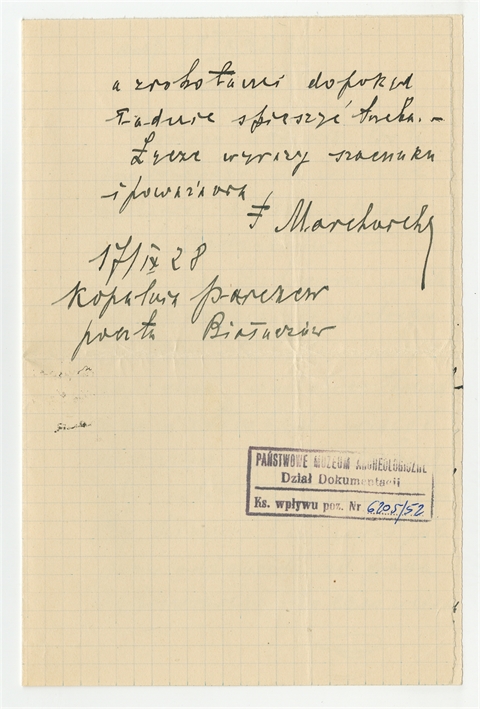 a zrobotami dopokąd
ładnie spieszyć trzeba. –
Łącze wyrazy szacunku
i poważania
J Marchwicki
17/IX 28
Kopalnia Parczew
poczta Białaczów
PAŃSTWOWE MUZEUM ARCHEOLOGICZNE
Dział Dokumentacji
Ks. wpływu poz. Nr 6205/52